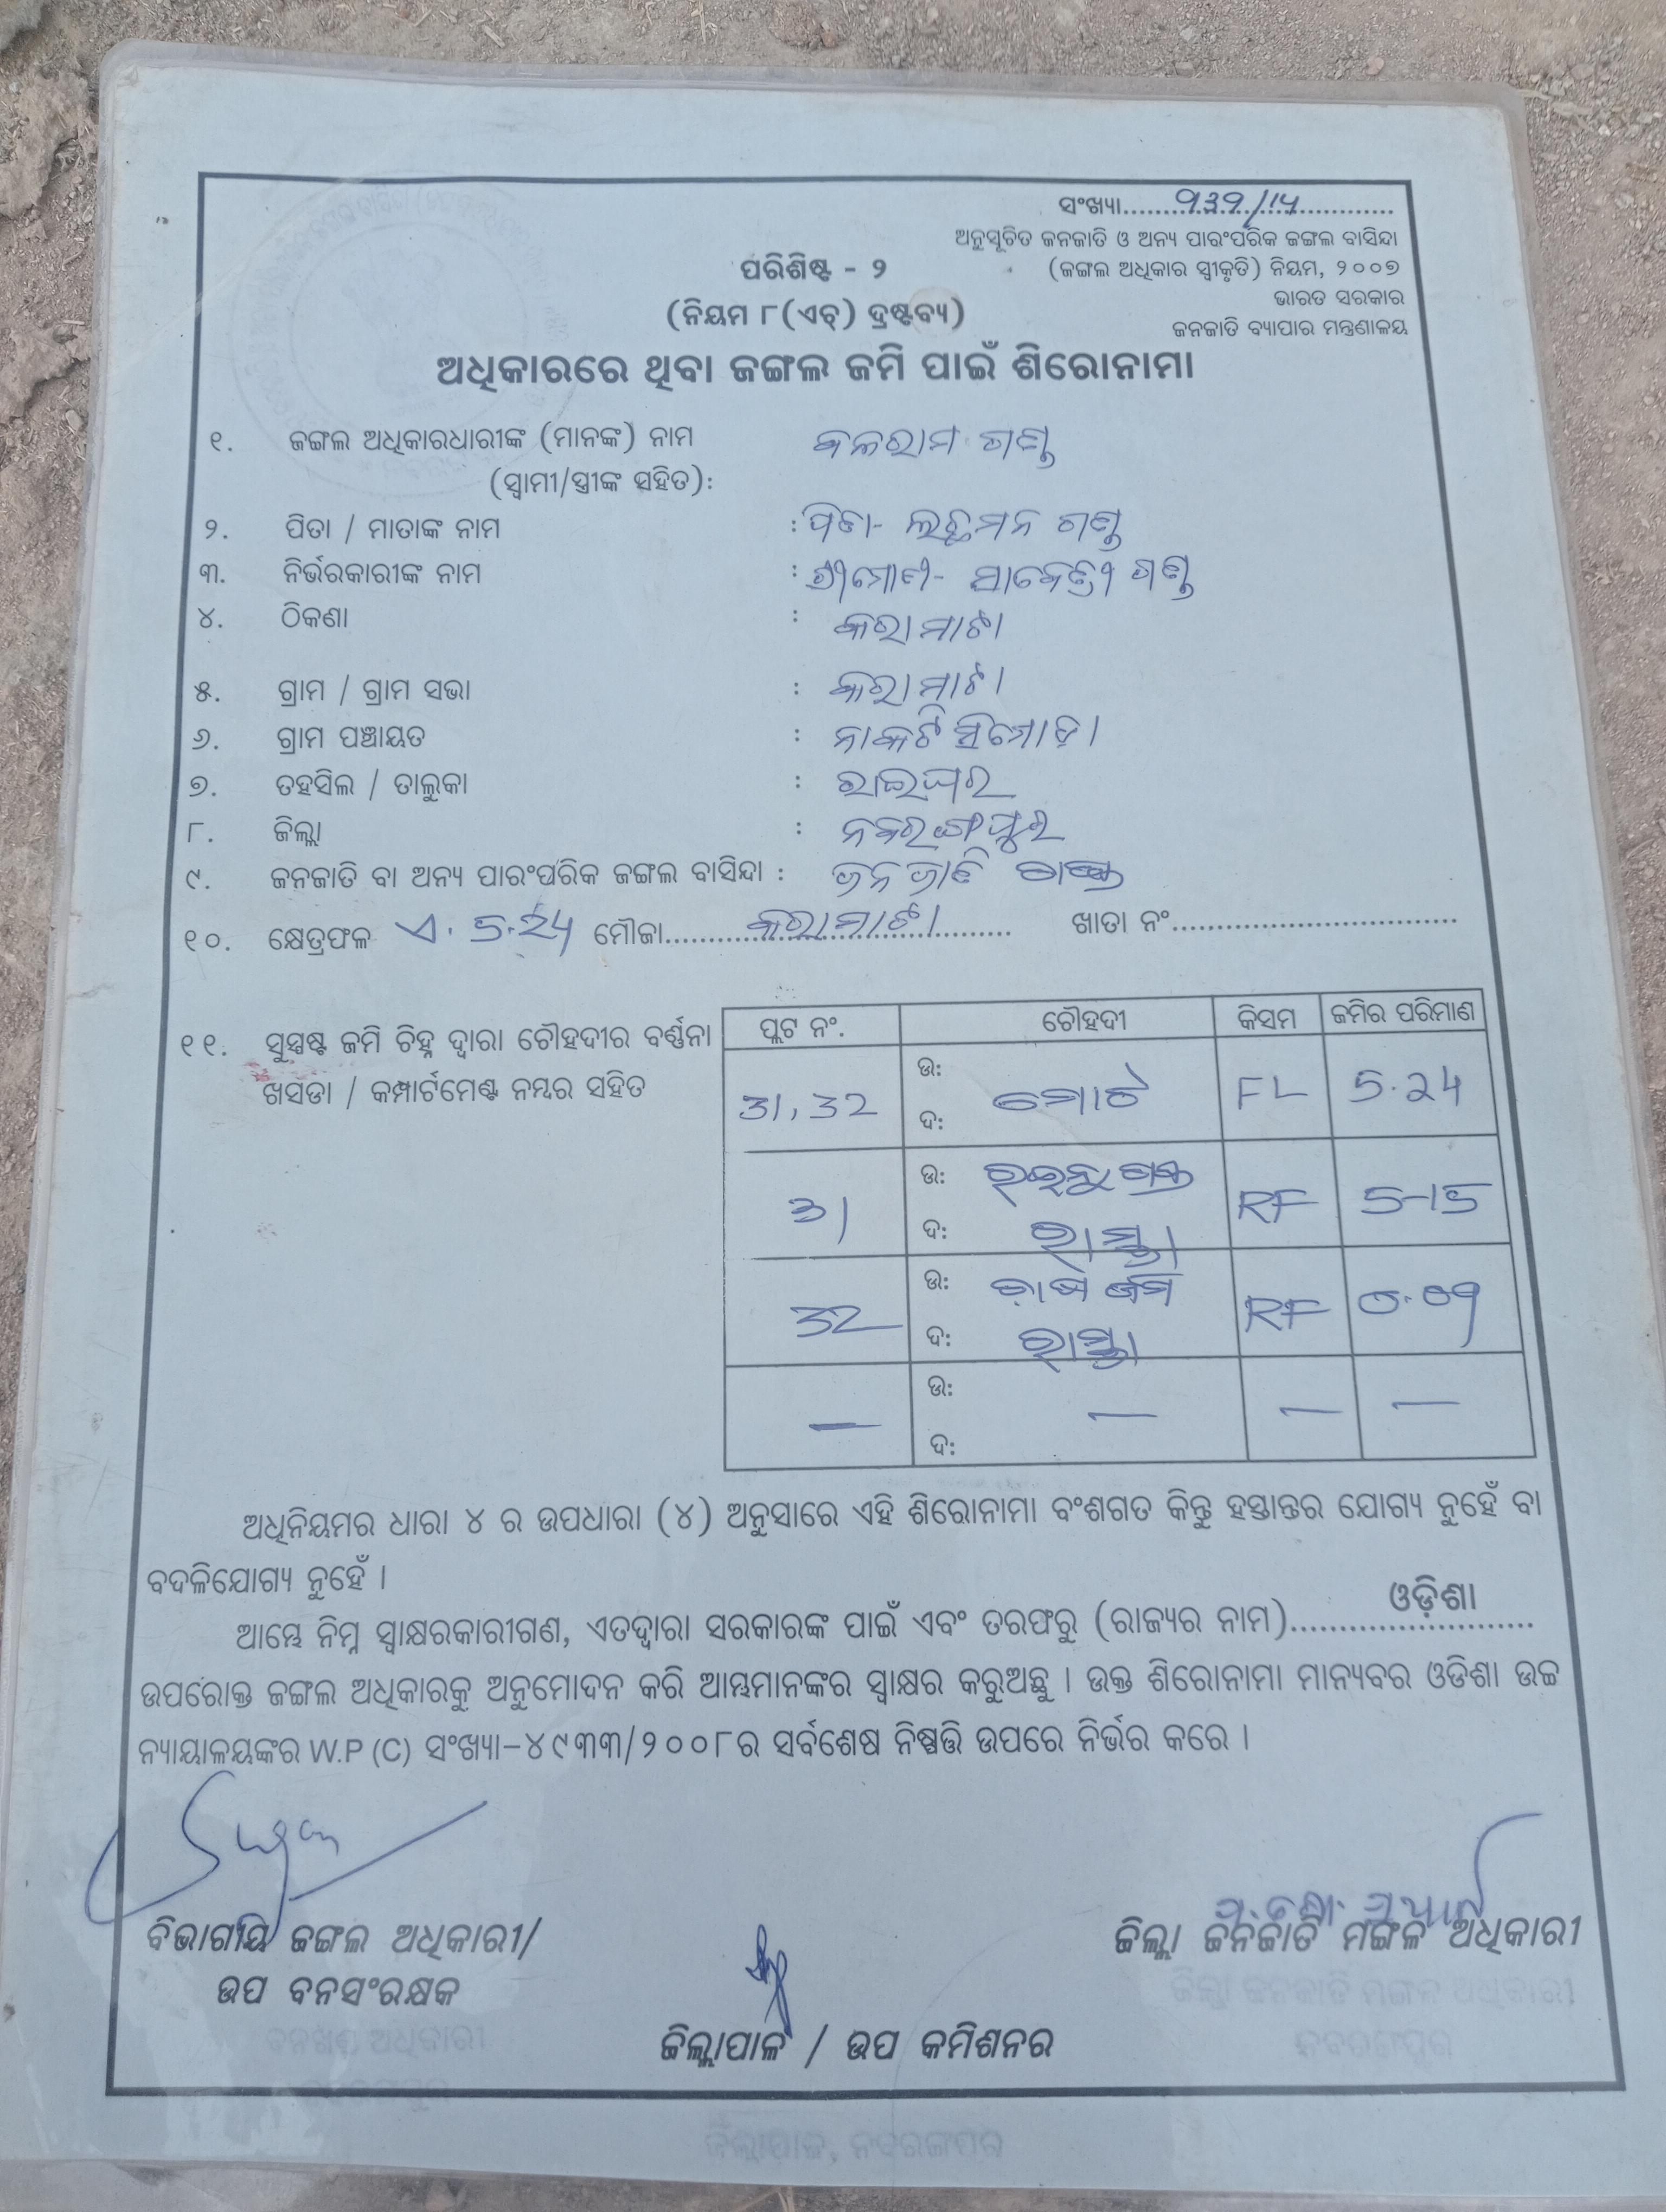 ସଂଖ୍ୟା..............................
ଅନୁସୂଚିତ ଜନଜାତି ଓ ଅନ୍ୟ ପାରଂପରିକ ଜଙ୍ଗଲ ବାସିନ୍ଦା
(ଜଙ୍ଗଲ ଅଧିକାର ସ୍ୱୀକୃତି) ନିୟମ, ୨୦୦୭
ଭାରତ ସରକାର
ଜନଜାତି ବ୍ୟାପାର ମନ୍ତ୍ରଣାଳୟ
ପରିଶିଷ୍ଟ - ୨
(ନିୟମ ୮(ଏଚ୍) ଦ୍ରଷ୍ଟବ୍ୟ)
ଅଧିକାରରେ ଥିବା ଜଙ୍ଗଲ ଜମି ପାଇଁ ଶିରୋନାମା
୧. ଜଙ୍ଗଲ ଅଧିକାରଧାରୀଙ୍କ (ମାନଙ୍କ) ନାମ ବଳରାମ ଗଣ୍ଡ
(ସ୍ୱାମୀ/ସ୍ତ୍ରୀଙ୍କ ସହିତ):
୨. ପିତା / ମାତାଙ୍କ ନାମ : ପିତା- ଲଚ୍ଛମନ ଗଣ୍ଡ
୩. ନିର୍ଭରକାରୀଙ୍କ ନାମ : ଗଣ୍ଡ
୪. ଠିକଣା : କରାମାଟା
୫. ଗ୍ରାମ / ଗ୍ରାମ ସଭା : କରାମାଟା
୬. ଗ୍ରାମ ପଞ୍ଚାୟତ : ନାକଟି ସିମୋଡ଼ା
୭. ତହସିଲ / ତାଲୁକା : ରାଇଘର
୮. ଜିଲ୍ଲା : ନବରଙ୍ଗପୁର
୯. ଜନଜାତି ବା ଅନ୍ୟ ପାରଂପରିକ ଜଙ୍ଗଲ ବାସିନ୍ଦା : ଜନଜାତି
୧୦. କ୍ଷେତ୍ରଫଳ ଏ. 5.24 ମୌଜା.....କରାମାଟା..... ଖାତା ନଂ..............................
୧୧. ସୁସ୍ପଷ୍ଟ ଜମି ଚିହ୍ନ ଦ୍ୱାରା ଚୌହଦୀର ବର୍ଣ୍ଣନା
ଖସଡା / କମ୍ପାର୍ଟମେଣ୍ଟ ନମ୍ବର ସହିତ
ପ୍ଲଟ ନଂ. ଚୌହଦୀ କିସମ ଜମିର ପରିମାଣ
31, 32 ଉ: ଦ: ମୋଟ FL 5.24
31 ଉ: ଗଣ୍ଡ RF 5-15
ଦ: ରାସ୍ତା
32 ଉ: ଜମି RF 0.09
ଦ: ରାସ୍ତା
— ଉ: — — —
ଦ:
ଅଧିନିୟମର ଧାରା ୪ ର ଉପଧାରା (୪) ଅନୁସାରେ ଏହି ଶିରୋନାମା ବଂଶଗତ କିନ୍ତୁ ହସ୍ତାନ୍ତର ଯୋଗ୍ୟ ନୁହେଁ ବା
ବଦଳିଯୋଗ୍ୟ ନୁହେଁ ।
ଆମ୍ଭେ ନିମ୍ନ ସ୍ୱାକ୍ଷରକାରୀଗଣ, ଏତଦ୍ୱାରା ସରକାରଙ୍କ ପାଇଁ ଏବଂ ତରଫରୁ (ରାଜ୍ୟର ନାମ).....ଓଡ଼ିଶା.....
ଉପରୋକ୍ତ ଜଙ୍ଗଲ ଅଧିକାରକୁ ଅନୁମୋଦନ କରି ଆମ୍ଭମାନଙ୍କର ସ୍ୱାକ୍ଷର କରୁଅଛୁ । ଉକ୍ତ ଶିରୋନାମା ମାନ୍ୟବର ଓଡିଶା ଉଚ୍ଚ
ନ୍ୟାୟାଳୟଙ୍କର W.P (C) ସଂଖ୍ୟା-୪୯୩୩/୨୦୦୮ର ସର୍ବଶେଷ ନିଷ୍ପତ୍ତି ଉପରେ ନିର୍ଭର କରେ ।
ବିଭାଗୀୟ ଜଙ୍ଗଲ ଅଧିକାରୀ/
ଉପ ବନସଂରକ୍ଷକ
ଜିଲ୍ଲା ଜନଜାତି ମଙ୍ଗଳ ଅଧିକାରୀ
ଜିଲ୍ଲା ଜନଜାତି ମଙ୍ଗଳ ଅଧିକାରୀ
ନବରଙ୍ଗପୁର
ଜିଲ୍ଲାପାଳ / ଉପ କମିଶନର
ଜିଲ୍ଲାପାଳ, ନବରଙ୍ଗପୁର